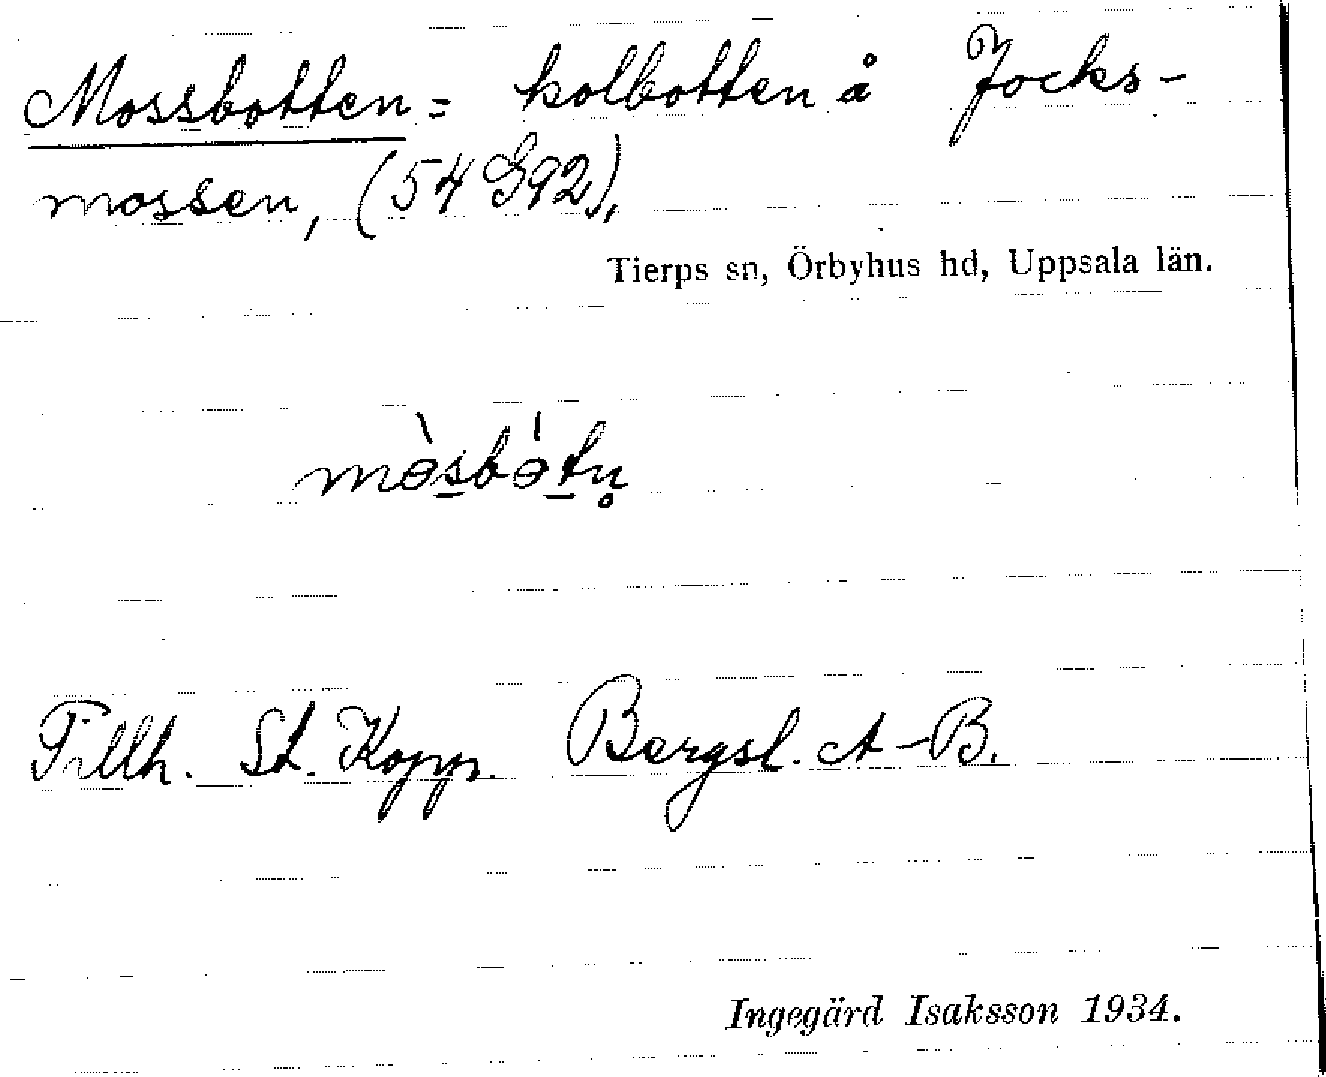 Mossbotten = kolbotten å Jocks-
mossen, (54 G92),
Tierps sn, Örbyhus hd, Uppsala län.
mòsbótn̥
Tillh. St. Kopp. Bergsl. A-B.
Ingegärd Isaksson 1934.